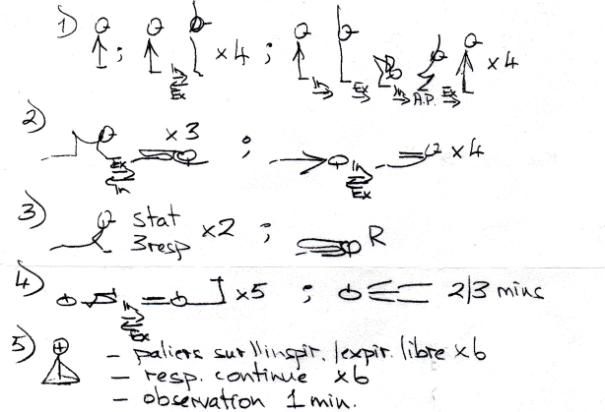 1) ; In Ex x4 ; In Ex In A.P. Ex x4
2) Ex In x3 ; In Ex x4
3) stat 3resp x2 ; R
4) In Ex x5 ; 2/3 mins
5) – paliers sur l'inspir. /expir. libre x6
– resp. continue x6
– observation 1 min.